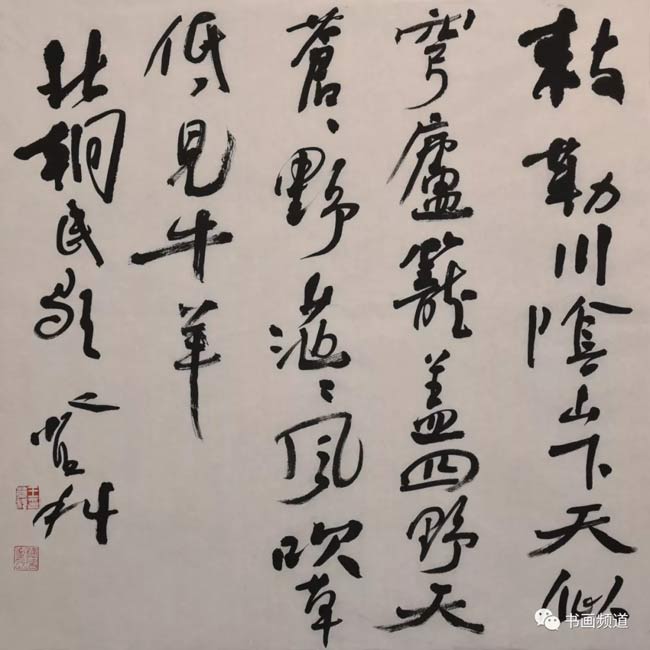 敕勒川陰山下天似
穹廬籠盖四野天
蒼〻野茫〻風吹草
低見牛羊
北朝民歌
书画频道